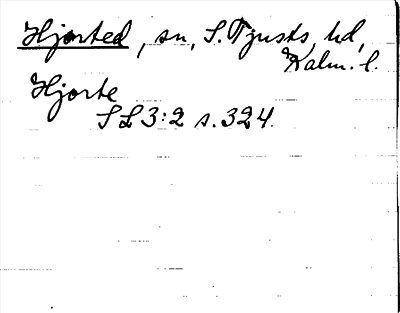 Hjorted, sn, S. Tjusts hd,
Kalm. l.
Hjorte
SL 3:2 s. 324.